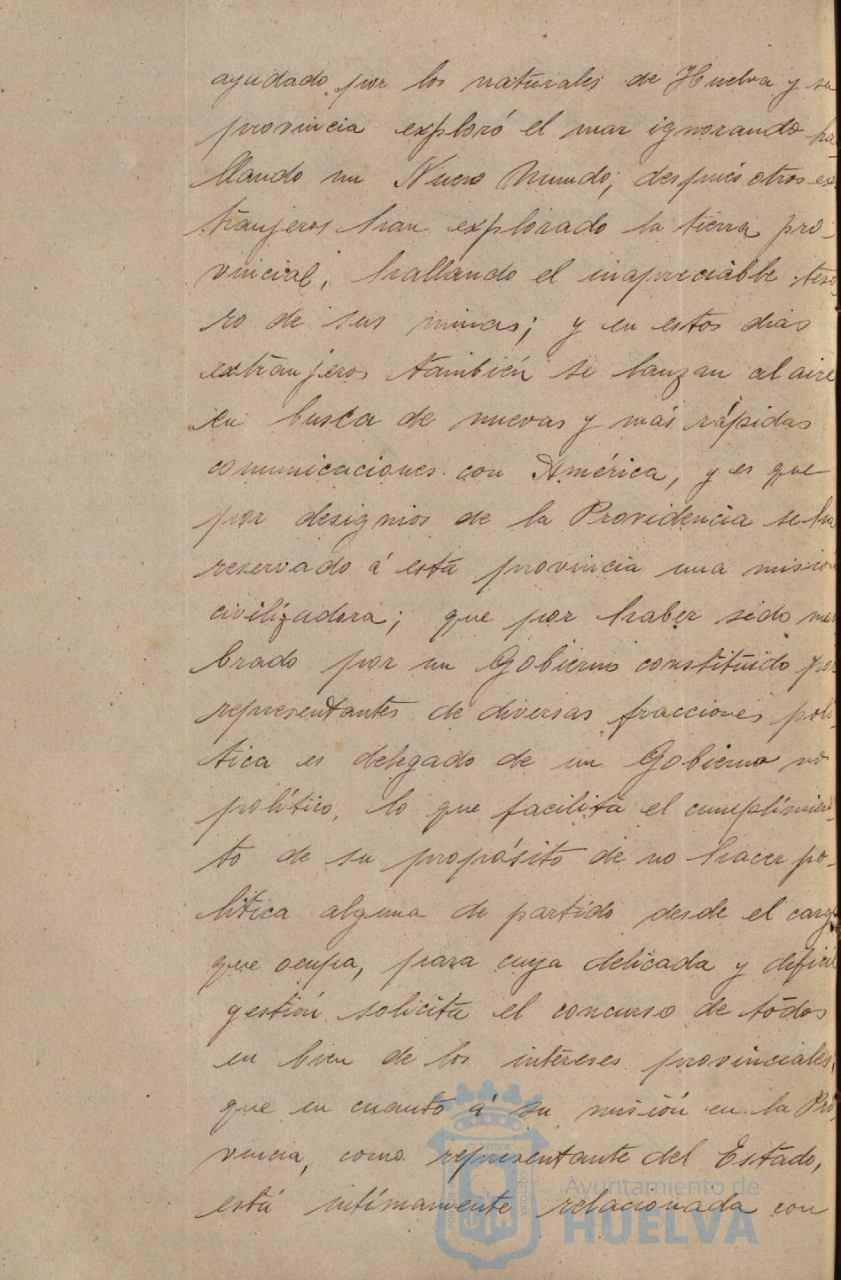 ayudado por los naturales de Huelva y su
provincia exploró el mar ignorando ha
llando un Nuevo Mundo; después otros ex
tranjeros han explorado la tierra pro-
vincial, hallando el inapreciable teso
ro de sus minas; y en estos dias
extranjeros también se lanzan al aire
en busca de nuevas y más rápidas
comunicaciones con América, y es que
por designios de la Providencia se ha
reservado á esta provincia una misión
civilizadora; que por haber sido nom
brado por un Gobierno constituido por
representantes de diversas fracciones polí
tica es delegado de un Gobierno no
político, lo que facilita el cumplimien
to de su propósito de no hacer po-
lítica alguna de partido desde el cargo
que ocupa, para cuya delicada y dificil
gestión solicita el concurso de todos
en bien de los intereses provinciales,
que en cuanto á su misión en la Pro
vincia, como representante del Estado,
está intimamente relacionada con
Ayuntamiento de
HUELVA